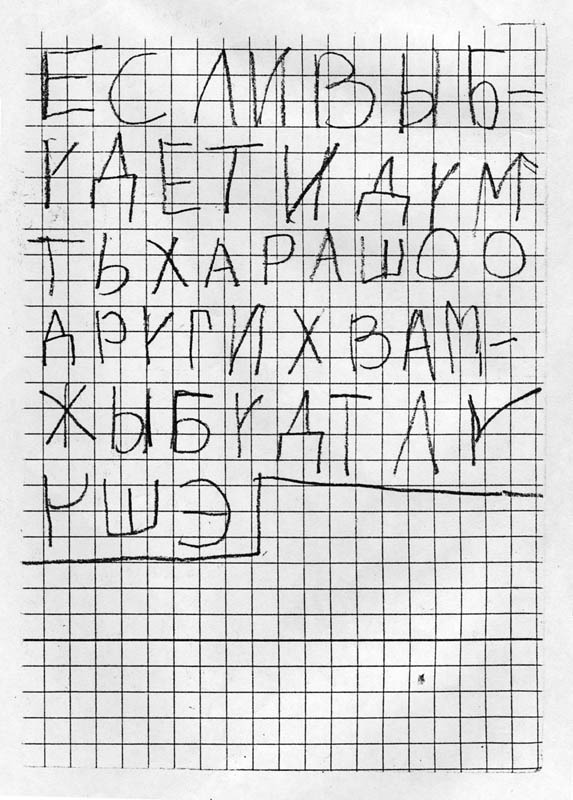 ЕСЛИВЫБ-
УДЕТИДУМ
ТЬХАРАШОО
ДРУГИХВАМ-
ЖЫБУДТЛУ
УШЭ